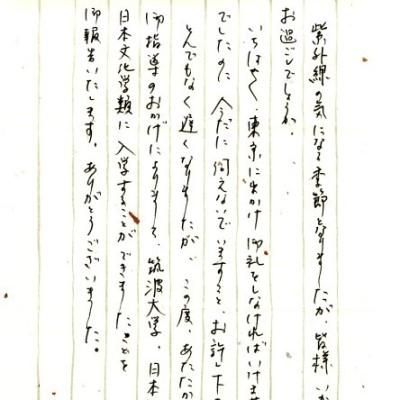 紫外線の気になる季節となりましたが、皆様 いか
お過ごしでしょうか。
いちはやく、東京に出かけ 御礼をしなければいけませ
でしたのに 今だに 伺えないでいますこと、お許し下さ
とんでもなく遅くなりましたが、この度、あたたか
御指導のおかげによりまして、筑波大学、日本
日本文化学類に 入学することができましたことを
御報告いたします。ありがとうございました。